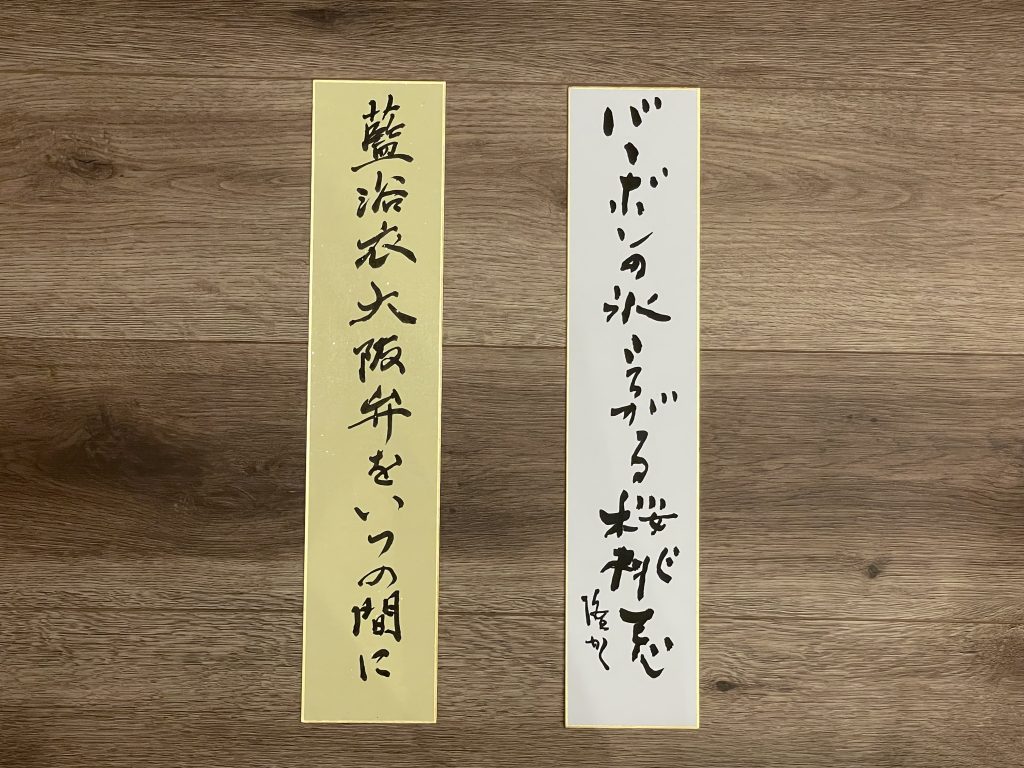 バーボンの氷ころがる桜桃忌
隆
藍浴衣大阪弁をいつの間に